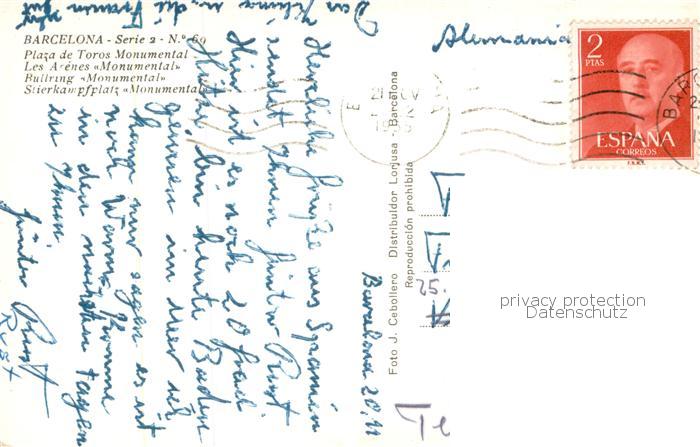 BARCELONA - Serie 2 - N.º 69
Plaza de Toros Monumental
Les Arénes «Monumental»
Bullring «Monumental»
Stierkampfplatz «Monumental»
Barcelona 20.11
Herzliche Grüße aus Spanien
sendet Ihnen Günter Rust
Hier ist es noch 20 Grad
Hitze, bin heute Baden
gewesen im Meer ich
kann nur sagen es ist
noch Warm, Komme
in den nächsten Tagen
zu Ihnen.
Günter Rust
Foto J. Cebollero Distribuidor Lorjusa - Barcelona
Reproducción prohibida
Alemania
2
PTAS
ESPAÑA
CORREOS
F.N.M.T.
BARC
25.
Te
privacy protection
Datenschutz